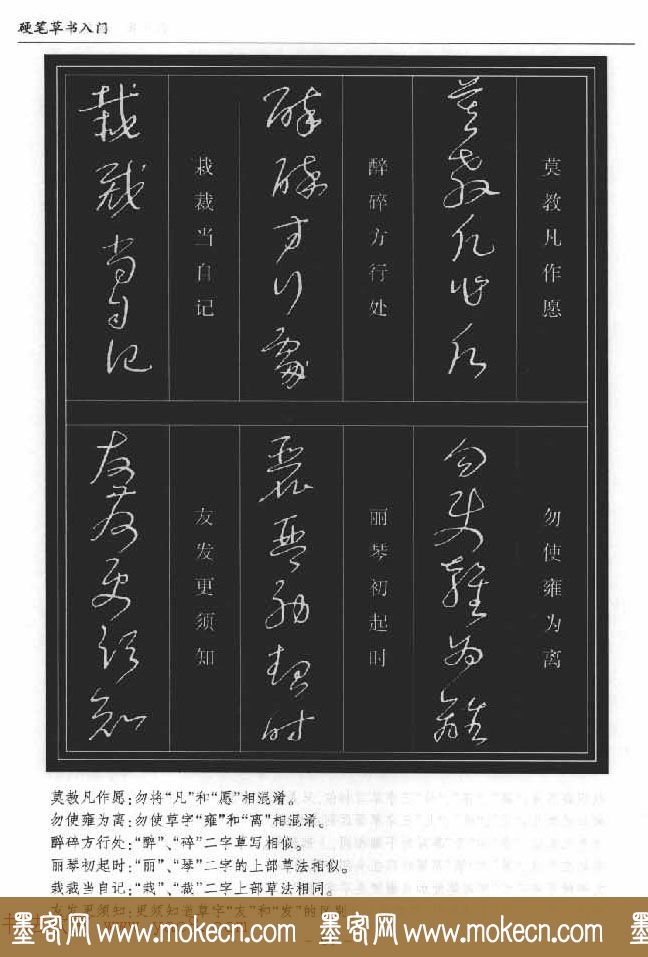 硬笔草书入门
莫教凡作愿
莫教凡作愿
勿使雍为离
勿使雍为离
醉碎方行处
醉碎方行处
丽琴初起时
丽琴初起时
栽裁当自记
栽裁当自记
友发更须知
友发更须知
莫教凡作愿:勿将“凡”和“愿”相混淆。
勿使雍为离:勿使草字“雍”和“离”相混淆。
醉碎方行处:“醉”、“碎”二字草写相似。
丽琴初起时:“丽”、“琴”二字的上部草法相似。
栽裁当自记:“栽”、“裁”二字上部草法相同。
友发更须知:更须知道草字“友”和“发”的区别
墨客网 www.mokecn.com 墨客网 www.mokecn.com